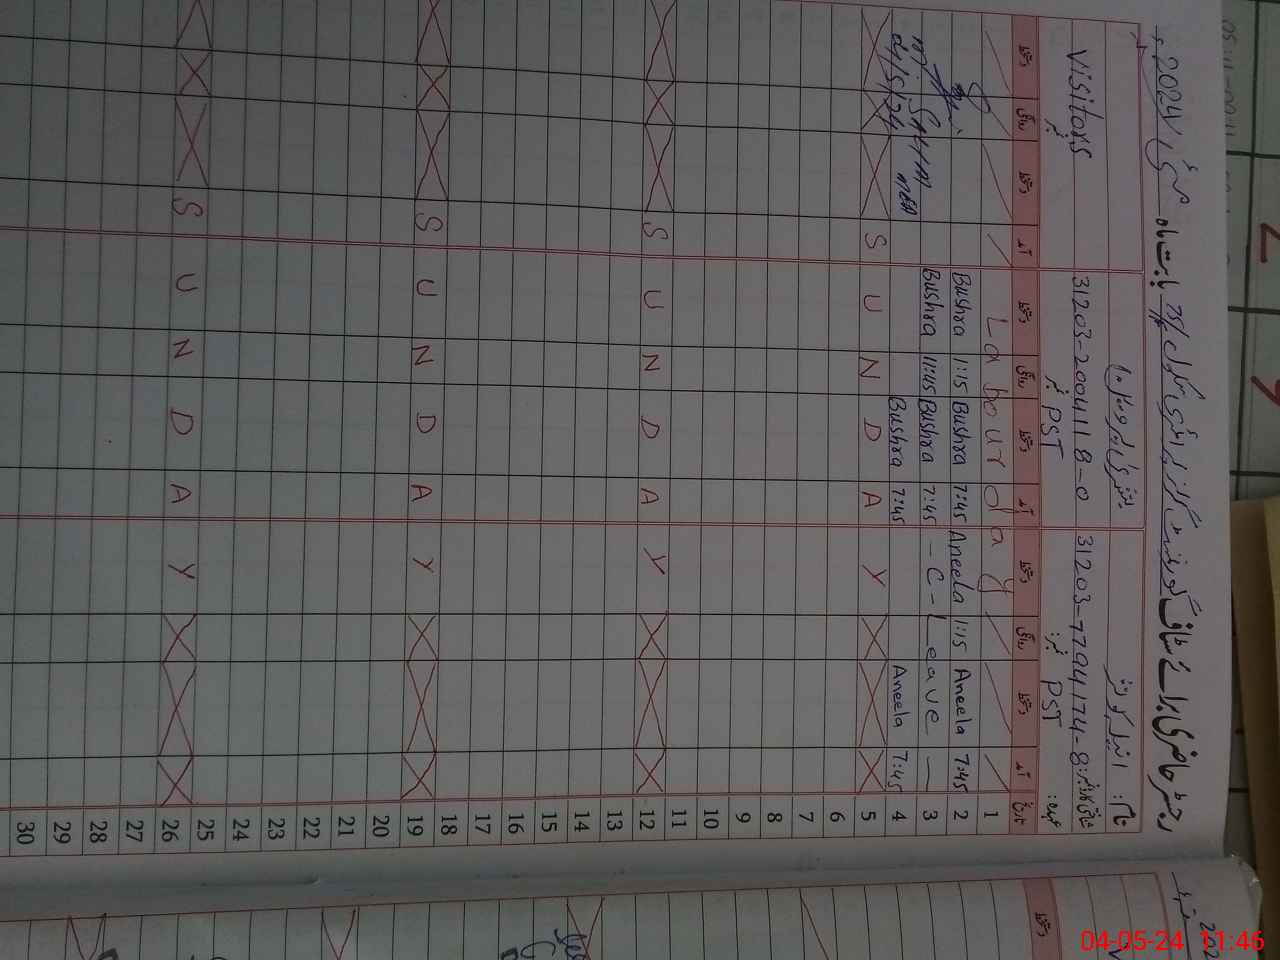 رجسٹر حاضری برائے سٹاف گورنمنٹ گرلز پرائمری سکول بابت ماہ مئی 2024ء
نام:
Visitors
شناختی کارڈ نمبر: 31203-7794174-8 31203-2004118-0
عہدہ: PST نمبر: PST نمبر نمبر
تاریخ آمد دستخط روانگی دستخط آمد دستخط روانگی دستخط آمد دستخط روانگی دستخط
1 Labour day
2 7:45 Aneela 1:15 Aneela 7:45 Bushra 1:15 Bushra
3 — C-Leave — 7:45 Bushra 11:45 Bushra
4 7:45 Aneela 7:45 Bushra
04/5/24
5 SUNDAY
6
7
8
9
10
11
12 SUNDAY
13
14
15
16
17
18
19 SUNDAY
20
21
22
23
24
25
26 SUNDAY
27
28
29
30
دستخط
04-05-24 11:46